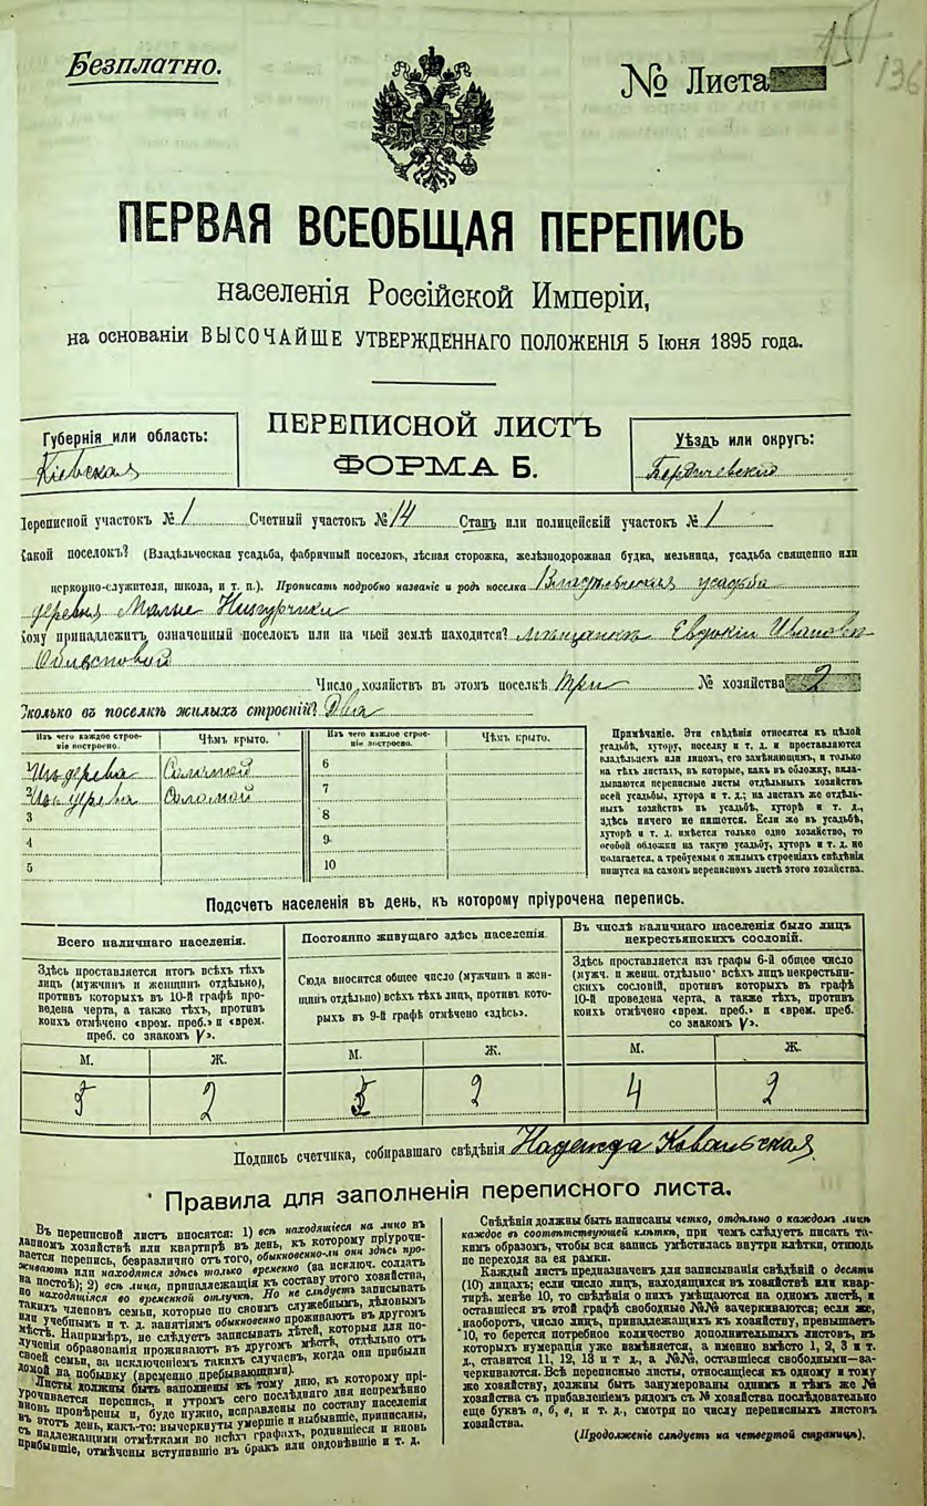 Безплатно.
№ Листа
157
136
ПЕРВАЯ ВСЕОБЩАЯ ПЕРЕПИСЬ
населенія Россійской Имперіи,
на основаніи ВЫСОЧАЙШЕ УТВЕРЖДЕННАГО ПОЛОЖЕНІЯ 5 Іюня 1895 года.
Губернія или область:
Кіевская
ПЕРЕПИСНОЙ ЛИСТЪ
ФОРМА Б.
Уѣздъ или округъ:
Бердичевскій
Переписной участокъ № 1 Счетный участокъ № 14 Станъ или полицейскій участокъ № 1
Какой поселокъ? (Владѣльческая усадьба, фабричный поселокъ, лѣсная сторожка, желѣзнодорожная будка, мельница, усадьба священно или
церковно-служителя, школа, и т. п.). Прописать подробно названіе и родъ поселка Владѣльческая усадьба
деревня Малые Низгурчики
Кому принадлежитъ означенный поселокъ или на чьей землѣ находится? мѣщанкѣ Евдокіи Ивановн
Число хозяйствъ въ этомъ поселкѣ три № хозяйства 2
Сколько въ поселкѣ жилыхъ строеній? Два
Изъ чего каждое строе-
ніе построено.
Чѣмъ крыто.
Изъ чего каждое строе-
ніе построено.
Чѣмъ крыто.
1 Изъ дерева Соломой 6
2 Изъ дерева Соломой 7
3 8
4 9
5 10
Примѣчаніе. Эти свѣдѣнія относятся къ цѣлой
усадьбѣ, хутору, поселку и т. д. и проставляются
владѣльцемъ или лицомъ, его замѣняющимъ, и только
на тѣхъ листахъ, въ которые, какъ въ обложку, вкла-
дываются переписные листы отдѣльныхъ хозяйствъ
всей усадьбы, хутора и т. д.; на листахъ же отдѣль-
ныхъ хозяйствъ въ усадьбѣ, хуторѣ и т. д.,
здѣсь ничего не пишется. Если же въ усадьбѣ,
хуторѣ и т. д. имѣется только одно хозяйство, то
особой обложки на такую усадьбу, хуторъ и т. д. не
полагается, а требуемыя о жилыхъ строеніяхъ свѣдѣнія
пишутся на самомъ переписномъ листѣ этого хозяйства.
Подсчетъ населенія въ день, къ которому пріурочена перепись.
Всего наличнаго населенія.
Здѣсь проставляется итогъ всѣхъ тѣхъ
лицъ (мужчинъ и женщинъ отдѣльно),
противъ которыхъ въ 10-й графѣ про-
ведена черта, а также тѣхъ, противъ
коихъ отмѣчено «врем. преб.» и «врем.
преб. со знакомъ V».
Постоянно живущаго здѣсь населенія.
Сюда вносится общее число (мужчинъ и жен-
щинъ отдѣльно) всѣхъ тѣхъ лицъ, противъ кото-
рыхъ въ 9-й графѣ отмѣчено «здѣсь».
Въ числѣ наличнаго населенія было лицъ
некрестьянскихъ сословій.
Здѣсь проставляется изъ графы 6-й общее число
(мужч. и женщ. отдѣльно) всѣхъ лицъ некрестьян-
скихъ сословій, противъ которыхъ въ графѣ
10-й проведена черта, а также тѣхъ, противъ
коихъ отмѣчено «врем. преб.» и «врем. преб.
со знакомъ V».
М. Ж. М. Ж. М. Ж.
5 2 5 2 4 2
Подпись счетчика, собиравшаго свѣдѣнія Надежда Ковальская
Правила для заполненія переписного листа.
Въ переписной листъ вносятся: 1) всѣ находящіеся на лицо въ
данномъ хозяйствѣ или квартирѣ въ день, къ которому пріурочи-
вается перепись, безразлично отъ того, обыкновенно-ли они здѣсь про-
живаютъ или находятся здѣсь только временно (за исключ. солдатъ
на постоѣ); 2) всѣ лица, принадлежащія къ составу этого хозяйства,
но находящіяся во временной отлучкѣ. Но не слѣдуетъ записывать
такихъ членовъ семьи, которые по своимъ служебнымъ, дѣловымъ
или учебнымъ и т. д. занятіямъ обыкновенно проживаютъ въ другомъ
мѣстѣ. Напримѣръ, не слѣдуетъ записывать дѣтей, которыя для по-
лученія образованія проживаютъ въ другомъ мѣстѣ, отдѣльно отъ
своей семьи, за исключеніемъ такихъ случаевъ, когда они прибыли
домой на побывку (временно пребывающими).
Листы должны быть заполнены къ тому дню, къ которому прі-
урочивается перепись, и утромъ сего послѣдняго дня непремѣнно
вновь провѣрены и, буде нужно, исправлены по составу населенія
въ этотъ день, какъ-то: вычеркнуты умершіе и выбывшіе, приписаны,
съ надлежащими отмѣтками во всѣхъ графахъ, родившіеся и вновь
прибывшіе, отмѣчены вступившіе въ бракъ или овдовѣвшіе и т. д.
Свѣдѣнія должны быть написаны четко, отдѣльно о каждомъ лицѣ
каждое въ соотвѣтствующей клѣткѣ, при чемъ слѣдуетъ писать та-
кимъ образомъ, чтобы вся запись умѣстилась внутри клѣтки, отнюдь
не переходя за ея рамки.
Каждый листъ предназначенъ для записыванія свѣдѣній о десяти
(10) лицахъ; если число лицъ, находящихся въ хозяйствѣ или квар-
тирѣ, менѣе 10, то свѣдѣнія о нихъ умѣщаются на одномъ листѣ, и
оставшіеся въ этой графѣ свободные №№ зачеркиваются; если же,
наоборотъ, число лицъ, принадлежащихъ къ хозяйству, превышаетъ
10, то берется потребное количество дополнительныхъ листовъ, въ
которыхъ нумерація уже измѣняется, а именно вмѣсто 1, 2, 3 и т.
д., ставится 11, 12, 13 и т д., а №№, оставшіеся свободными—за-
черкиваются. Всѣ переписные листы, относящіеся къ одному и тому
же хозяйству, должны быть занумерованы однимъ и тѣмъ же №
хозяйства съ прибавленіемъ рядомъ съ № хозяйства послѣдовательно
еще буквъ а, б, в, и т. д., смотря по числу переписныхъ листовъ
хозяйства.
(Продолженіе слѣдуетъ на четвертой страницѣ).